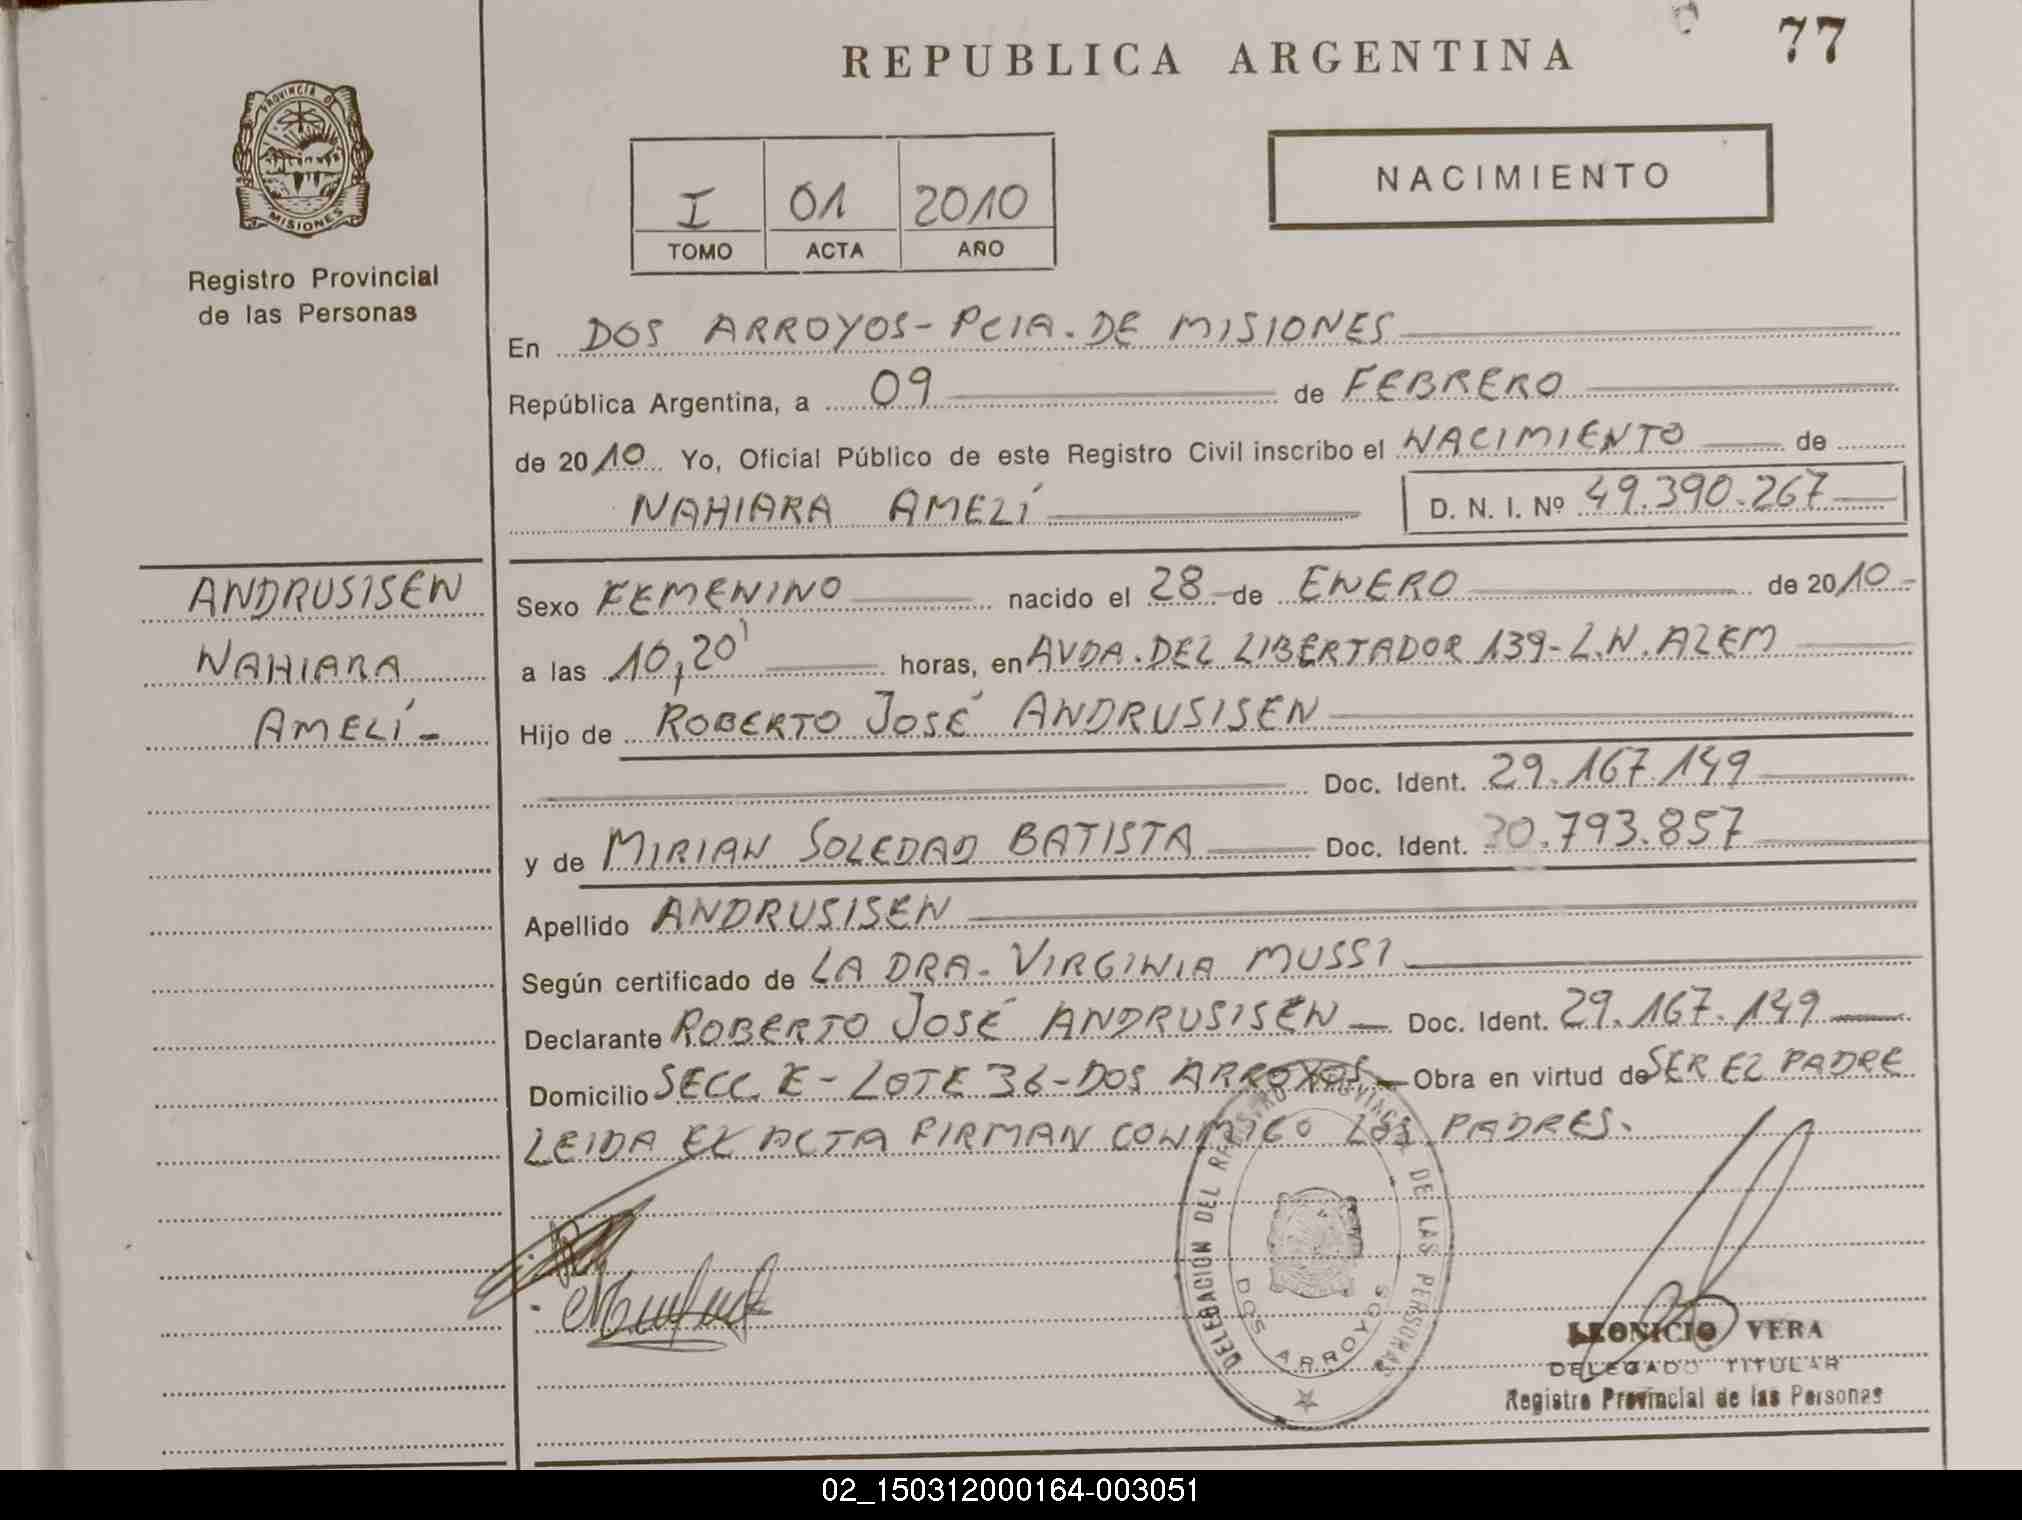 REPUBLICA ARGENTINA
77
PROVINCIA DE
MISIONES
Registro Provincial
de las Personas
I 01 2010
TOMO ACTA AÑO
NACIMIENTO
En DOS ARROYOS - PCIA. DE MISIONES
República Argentina, a 09 de FEBRERO
de 2010 Yo, Oficial Público de este Registro Civil inscribo el NACIMIENTO de
NAHIARA AMELÍ D. N. I. Nº 49.390.267
ANDRUSISEN
NAHIARA
AMELÍ -
Sexo FEMENINO nacido el 28 de ENERO de 2010 -
a las 10,20' horas, en AVDA. DEL LIBERTADOR 139 - L.N. ALEM
Hijo de ROBERTO JOSÉ ANDRUSISEN
Doc. Ident. 29.167.149
y de MIRIAN SOLEDAD BATISTA Doc. Ident. 30.793.857
Apellido ANDRUSISEN
Según certificado de LA DRA. VIRGINIA MUSSI
Declarante ROBERTO JOSÉ ANDRUSISEN Doc. Ident. 29.167.149
Domicilio SECC. E - LOTE 36 - DOS ARROYOS Obra en virtud de SER EL PADRE
LEIDA EL ACTA FIRMAN CONMIGO LOS PADRES.
DELEGACION DEL REGISTRO PROVINCIAL DE LAS PERSONAS
DOS ARROYOS
LEONICIO VERA
DELEGADO TITULAR
Registro Provincial de las Personas
02_150312000164-003051